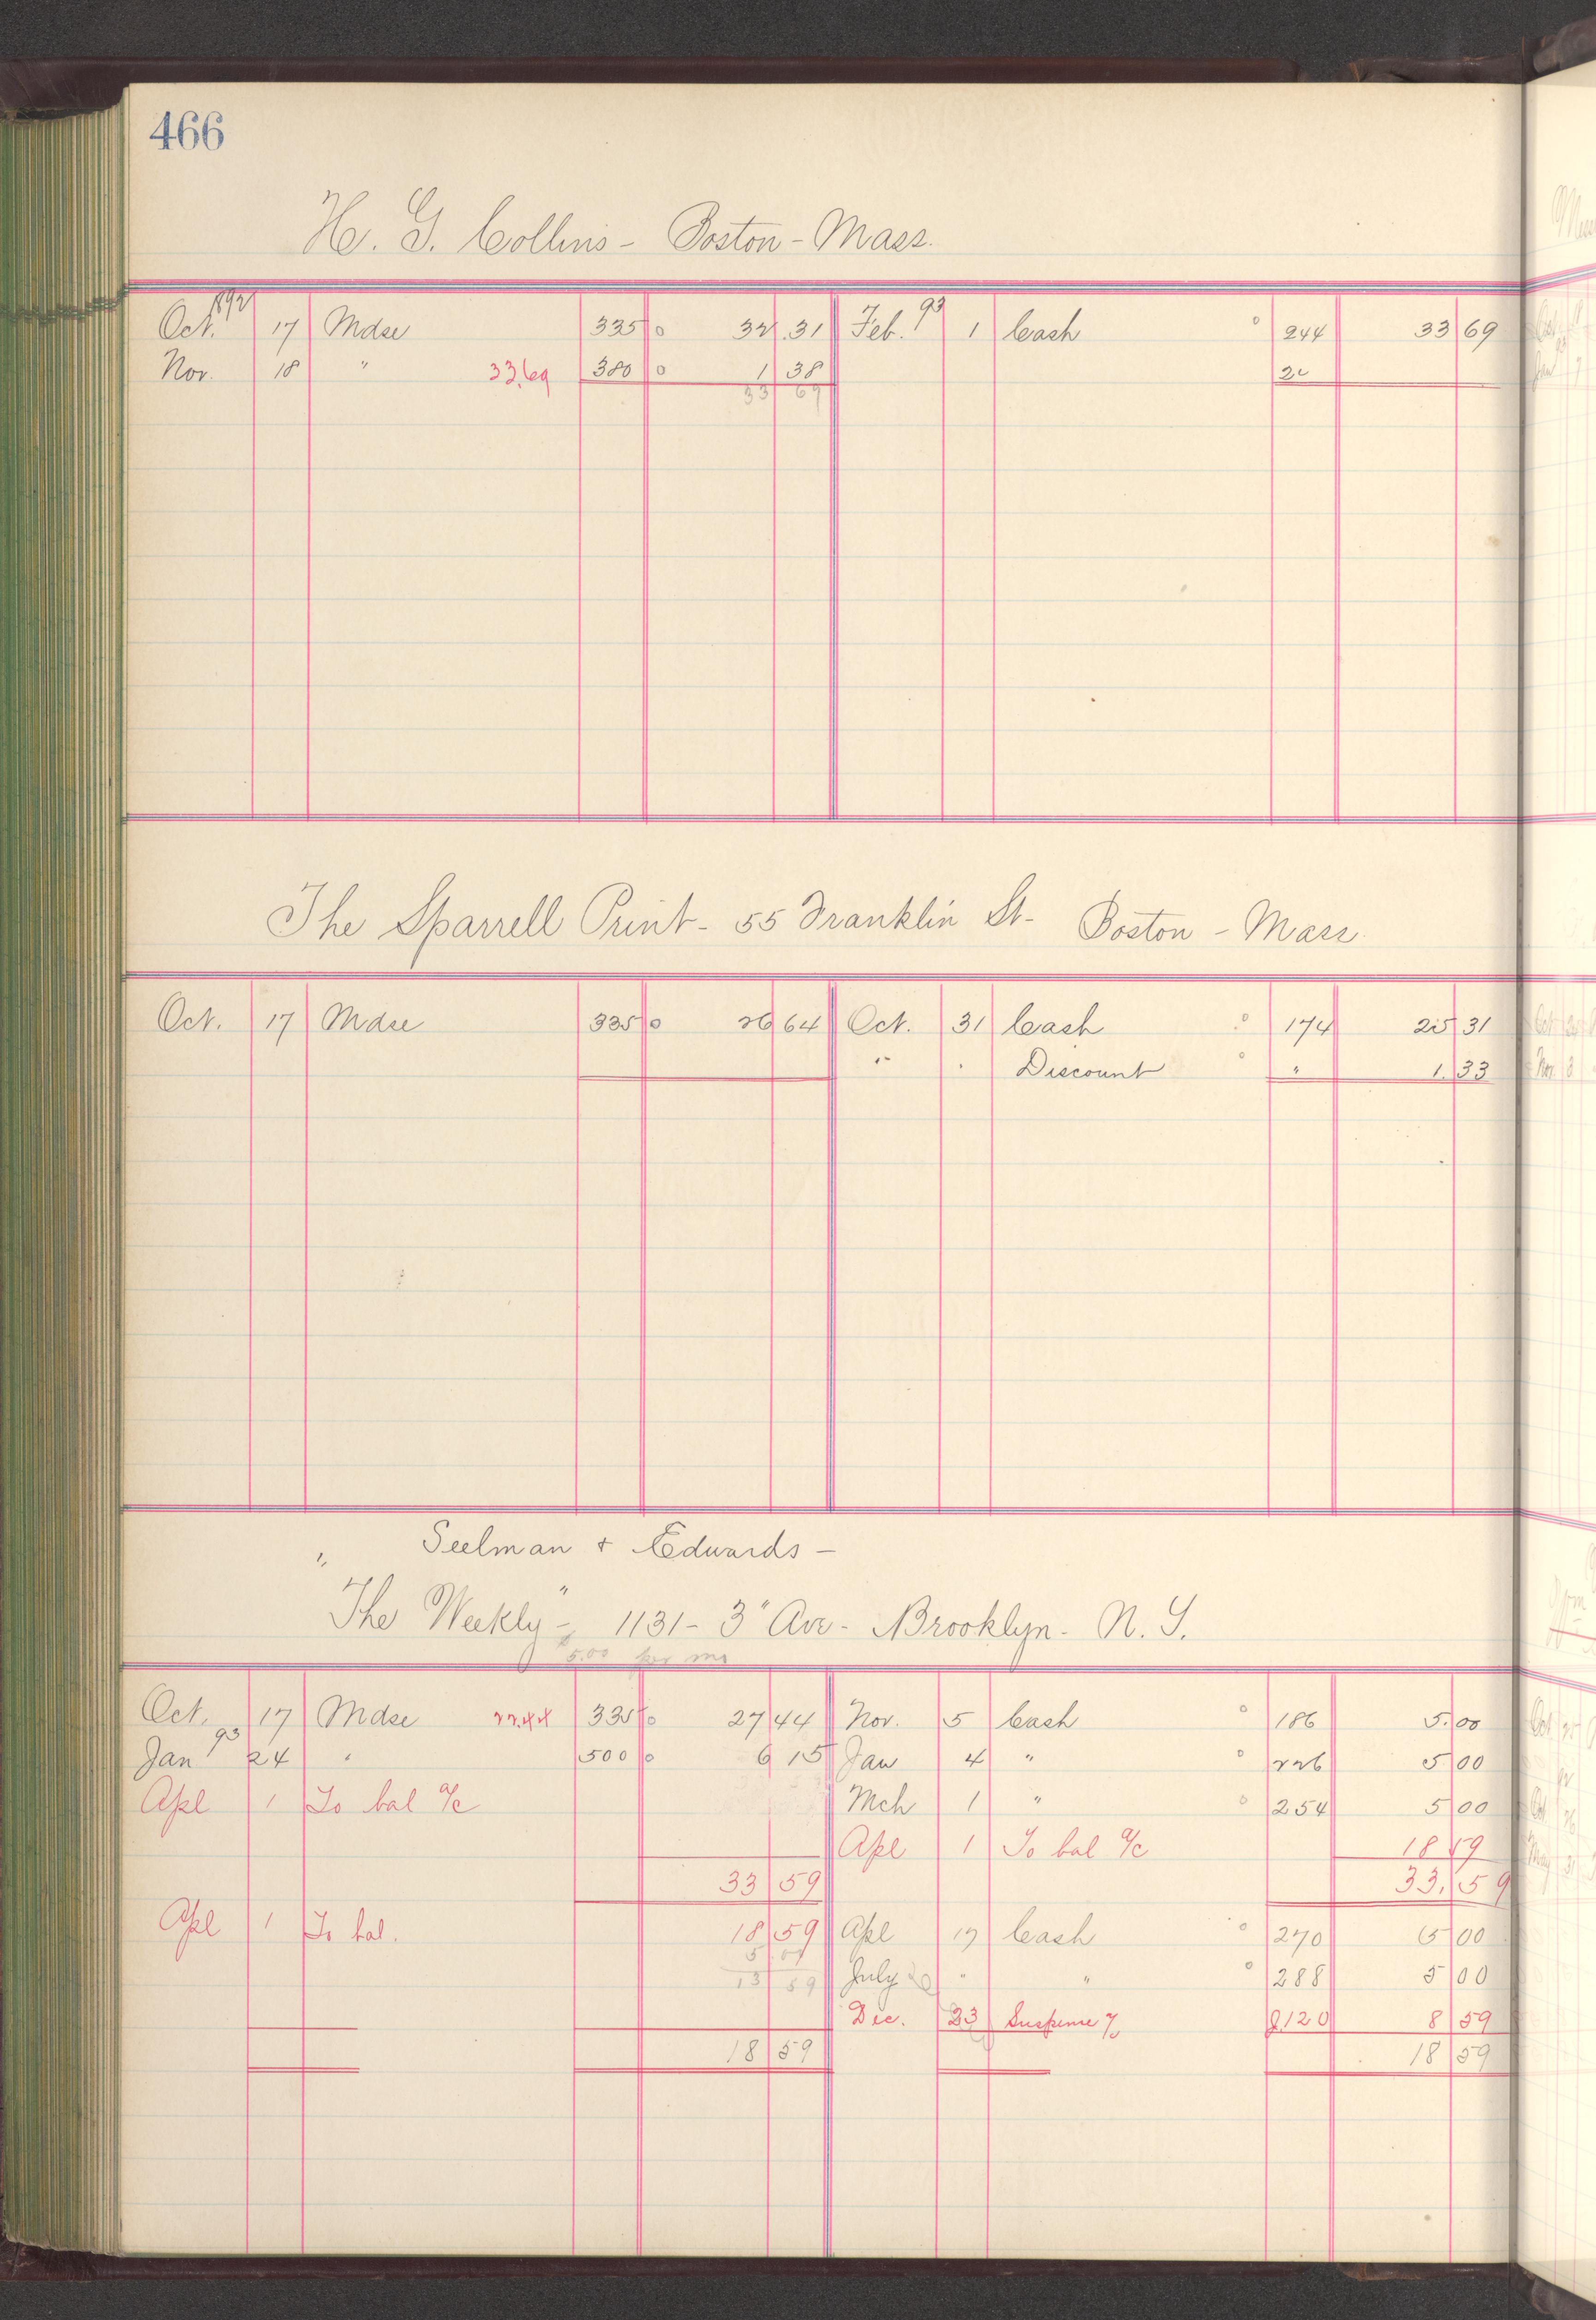 466
H. G. Collins - Boston - Mass.
Oct. 1892 17 Mdse 335 0 32.31 Feb. 93 1 Cash 0 244 33 69
Nov. 18 " 33.69 380 0 1 38
33 69
The Sparrell Print - 55 Franklin St - Boston - Mass
Oct. 17 Mdse 335 0 26 64 Oct. 31 Cash 0 174 25 31
" " Discount 0 " 1.33
Seelman + Edwards -
"The Weekly" - 1131 - 3" Ave - Brooklyn - N. Y.
$5.00 per mo
Oct. 17 Mdse 27.44 335 0 27 44 Nov. 5 Cash 0 186 5.00
Jan 93 24 " 500 0 6 15 Jan 4 " 0 226 5 00
Apl 1 To bal a/c Mch 1 " 0 254 5 00
Apl 1 To bal a/c 18
33 59 33.59
Apl 1 To bal. 18 59 Apl 17 Cash 0 270 5 00
5 00
13 59 July 20 " " 0 288 5 00
Dec. 23 Suspense a/c 120 8 59
18 59 18 59